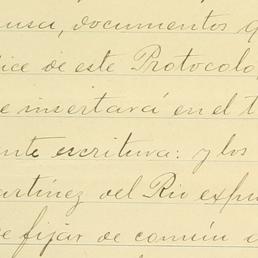 ausa, documentos q
ice de este Protocolo
e insertará en el t
nte escritura: y los
artínez del Rio expu
e fijar de comun a